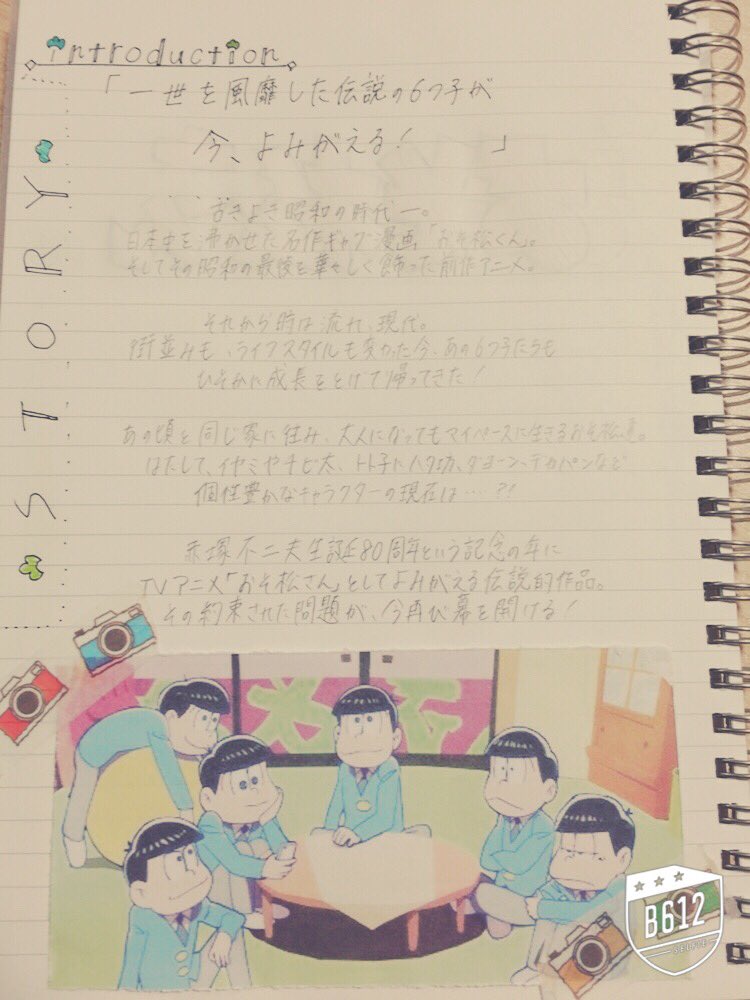 introduction
「一世を風靡した伝説の6つ子が
今、よみがえる! 」
STORY
古きよき昭和の時代ー。
日本中を沸かせた名作ギャグ漫画「おそ松くん」。
そしてその昭和の最後を華々しく飾った前作アニメ。
それから時は流れ、現代。
街並みも、ライフスタイルも変わった今、あの6つ子たちも
ひそかに成長をとげて帰ってきた!
あの頃と同じ家に住み、大人になってもマイペースに生きるおそ松達。
はたして、イヤミやチビ太、トト子にハタ坊、ダヨーン、デカパンなど
個性豊かなキャラクターの現在は…?!
赤塚不二夫生誕80周年という記念の年に
TVアニメ「おそ松さん」としてよみがえる伝説的作品。
その約束された問題が、今再び幕を開ける!
B612
SELFIE